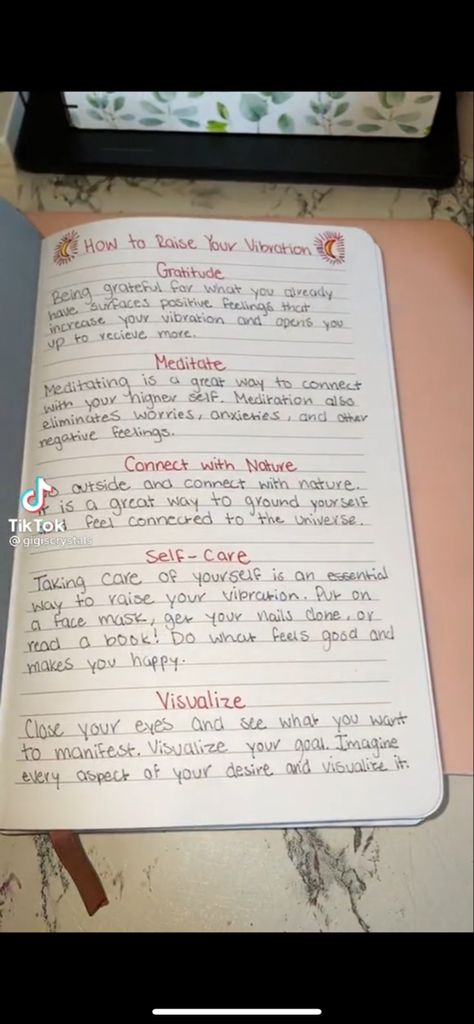 How to Raise Your Vibration
Gratitude
Being grateful for what you already
have surfaces positive feelings that
increase your vibration and opens you
up to recieve more.
Meditate
Meditating is a great way to connect
with your higher self. Meditation also
eliminates worries, anxieties, and other
negative feelings.
Connect with Nature
outside and connect with nature.
is a great way to ground yourself
feel connected to the universe.
TikTok
@gigiscrystals
Self-Care
Taking care of yourself is an essential
way to raise your vibration. Put on
a face mask, get your nails done, or
read a book! Do what feels good and
makes you happy.
Visualize
Close your eyes and see what you want
to manifest. Visualize your goal. Imagine
every aspect of your desire and visualize it.